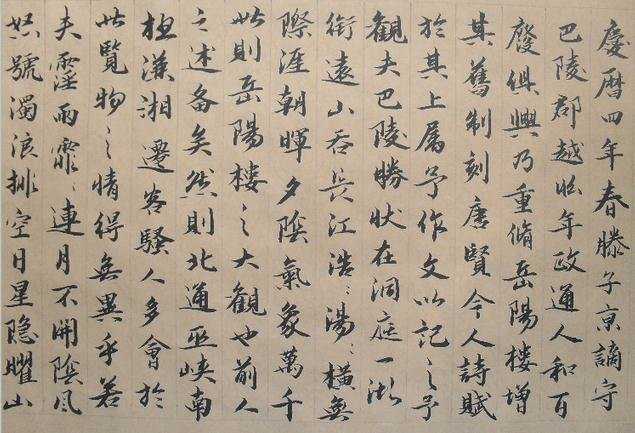 慶暦四年春滕子京謫守
巴陵郡越明年政通人和百
廢俱興乃重脩岳陽樓增
其舊制刻唐賢今人詩賦
於其上属予作文以記之予
觀夫巴陵勝狀在洞庭一湖
銜遠山吞長江浩〻湯〻橫無
際涯朝暉夕陰氣象萬千
此則岳陽樓之大觀也前人
之述备矣然則北通巫峽南
極瀟湘遷客騷人多會於
此覽物之情得無異乎若
夫霪雨霏〻連月不開陰風
怒號濁浪排空日星隐曜山